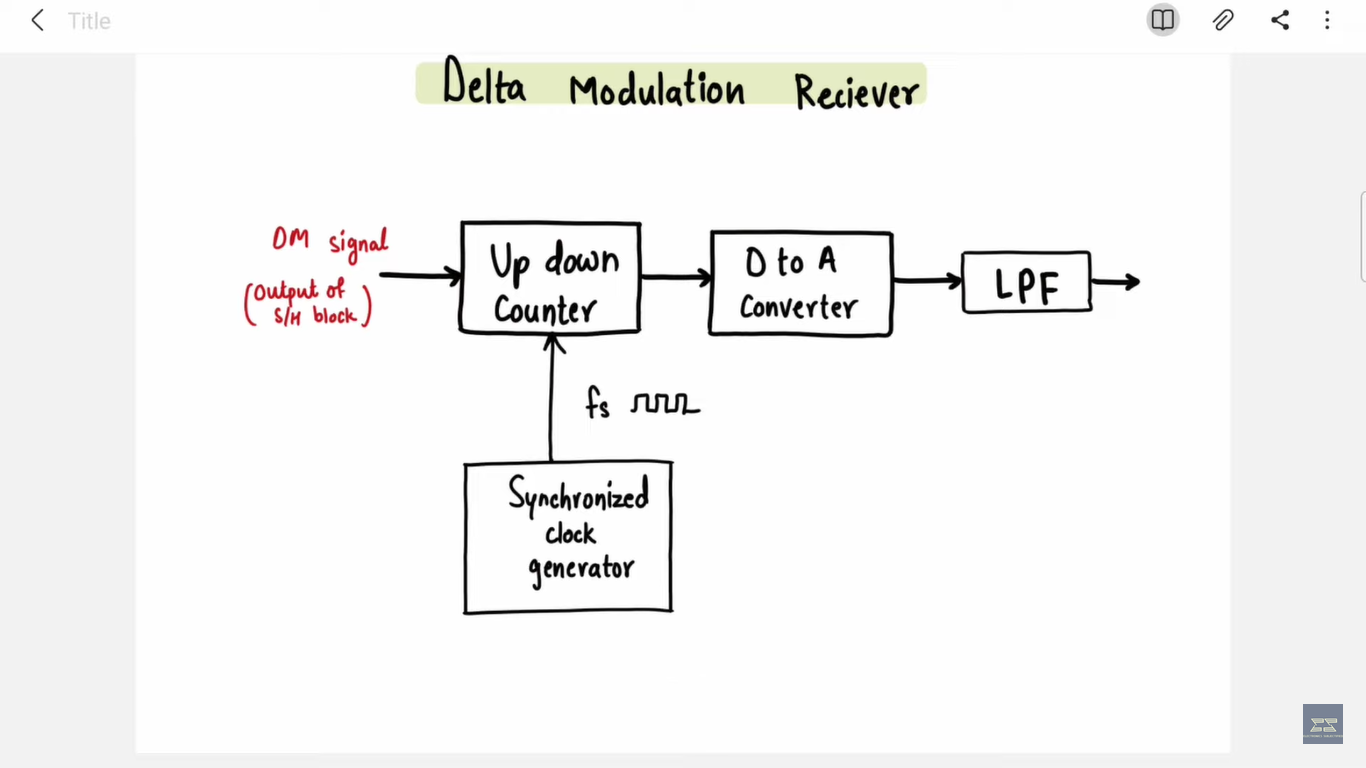 Title
Delta Modulation Reciever
DM signal
(Output of
S/H block)
Up down
Counter
D to A
Converter
LPF
fs
Synchronized
clock
generator